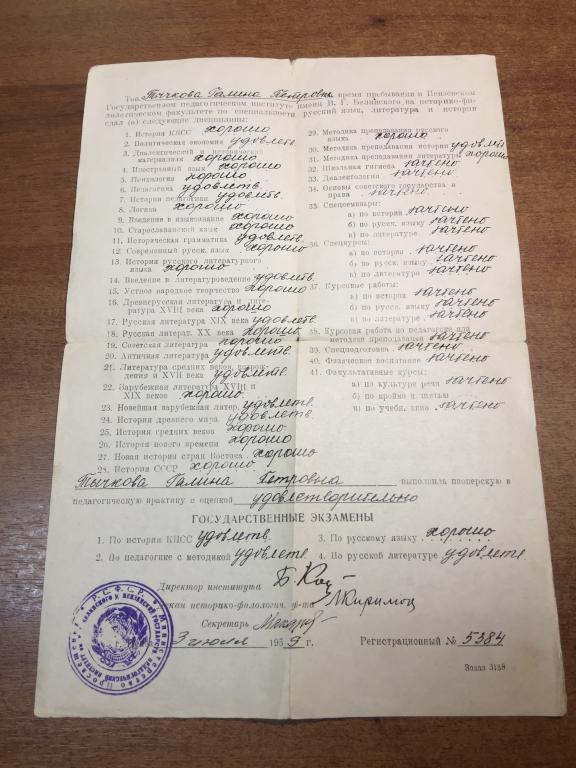 Тов. Тычкова Галина Петровна время пребывания в Пензенском
Государственном педагогическом институте имени В. Г. Белинского на историко-фи-
лологическом факультете по специальности русский язык, литература и история
сдал (а) следующие дисциплины:
1. История КПСС хорошо
2. Политическая экономия удовлетв.
3. Диалектический и исторический
материализм хорошо
4. Иностранный язык хорошо
5. Психология хорошо
6. Педагогика удовлетв.
7. История педагогики удовлетв.
8. Логика хорошо
9. Введение в языкознание хорошо
10. Старославянский язык хорошо
11. Историческая грамматика удовлетв.
12. Современный русск. язык хорошо
13. История русского литературного
языка хорошо
14. Введение в литературоведение удовлетв.
15. Устное народное творчество хорошо
16. Древнерусская литература и лите-
ратура XVIII века хорошо
17. Русская литература XIX века удовлетв.
18. Русская литерат. XX века хорошо
19. Советская литература хорошо
20. Античная литература удовлетв.
21. Литература средних веков, возрож-
дения и XVII века удовлетв.
22. Зарубежная литература XVIII и
XIX веков хорошо
23. Новейшая зарубежная литер. удовлетв.
24. История древнего мира удовлетв.
25. История средних веков хорошо
26. История нового времени хорошо
27. Новая история стран Востока хорошо
28. История СССР хорошо
29. Методика преподавания русского
языка хорошо
30. Методика преподавания истории удовлетв
31. Методика преподавания литературы хорошо
32. Школьная гигиена зачтено
33. Диалектология зачтено
34. Основы советского государства и
права зачтено
35. Спецсеминары:
а) по истории зачтено
б) по русск. языку зачтено
в) по литературе зачтено
36. Спецкурсы:
а) по истории зачтено
б) по русск. языку зачтено
в) по литературе зачтено
37. Курсовые работы:
а) по истории зачтено
б) по русск. языку зачтено
в) по литературе зачтено
38. Курсовая работа по педагогике или
методике преподавания зачтено
39. Спецподготовка зачтено
40. Физическое воспитание зачтено
41. Факультативные курсы:
а) по культуре речи зачтено
б) по кройке и шитью
в) по учебн. кино зачтено
Тычкова Галина Петровна выполнила пионерскую и
педагогическую практику с оценкой удовлетворительно
ГОСУДАРСТВЕННЫЕ ЭКЗАМЕНЫ
1. По истории КПСС удовлетв.
2. По педагогике с методикой удовлетв
3. По русскому языку хорошо
4. По русской литературе удовлетв.
Директор института
Декан историко-филологич. ф-та
Секретарь
3 июля 1959 г.
Регистрационный № 5384
Заказ 3158